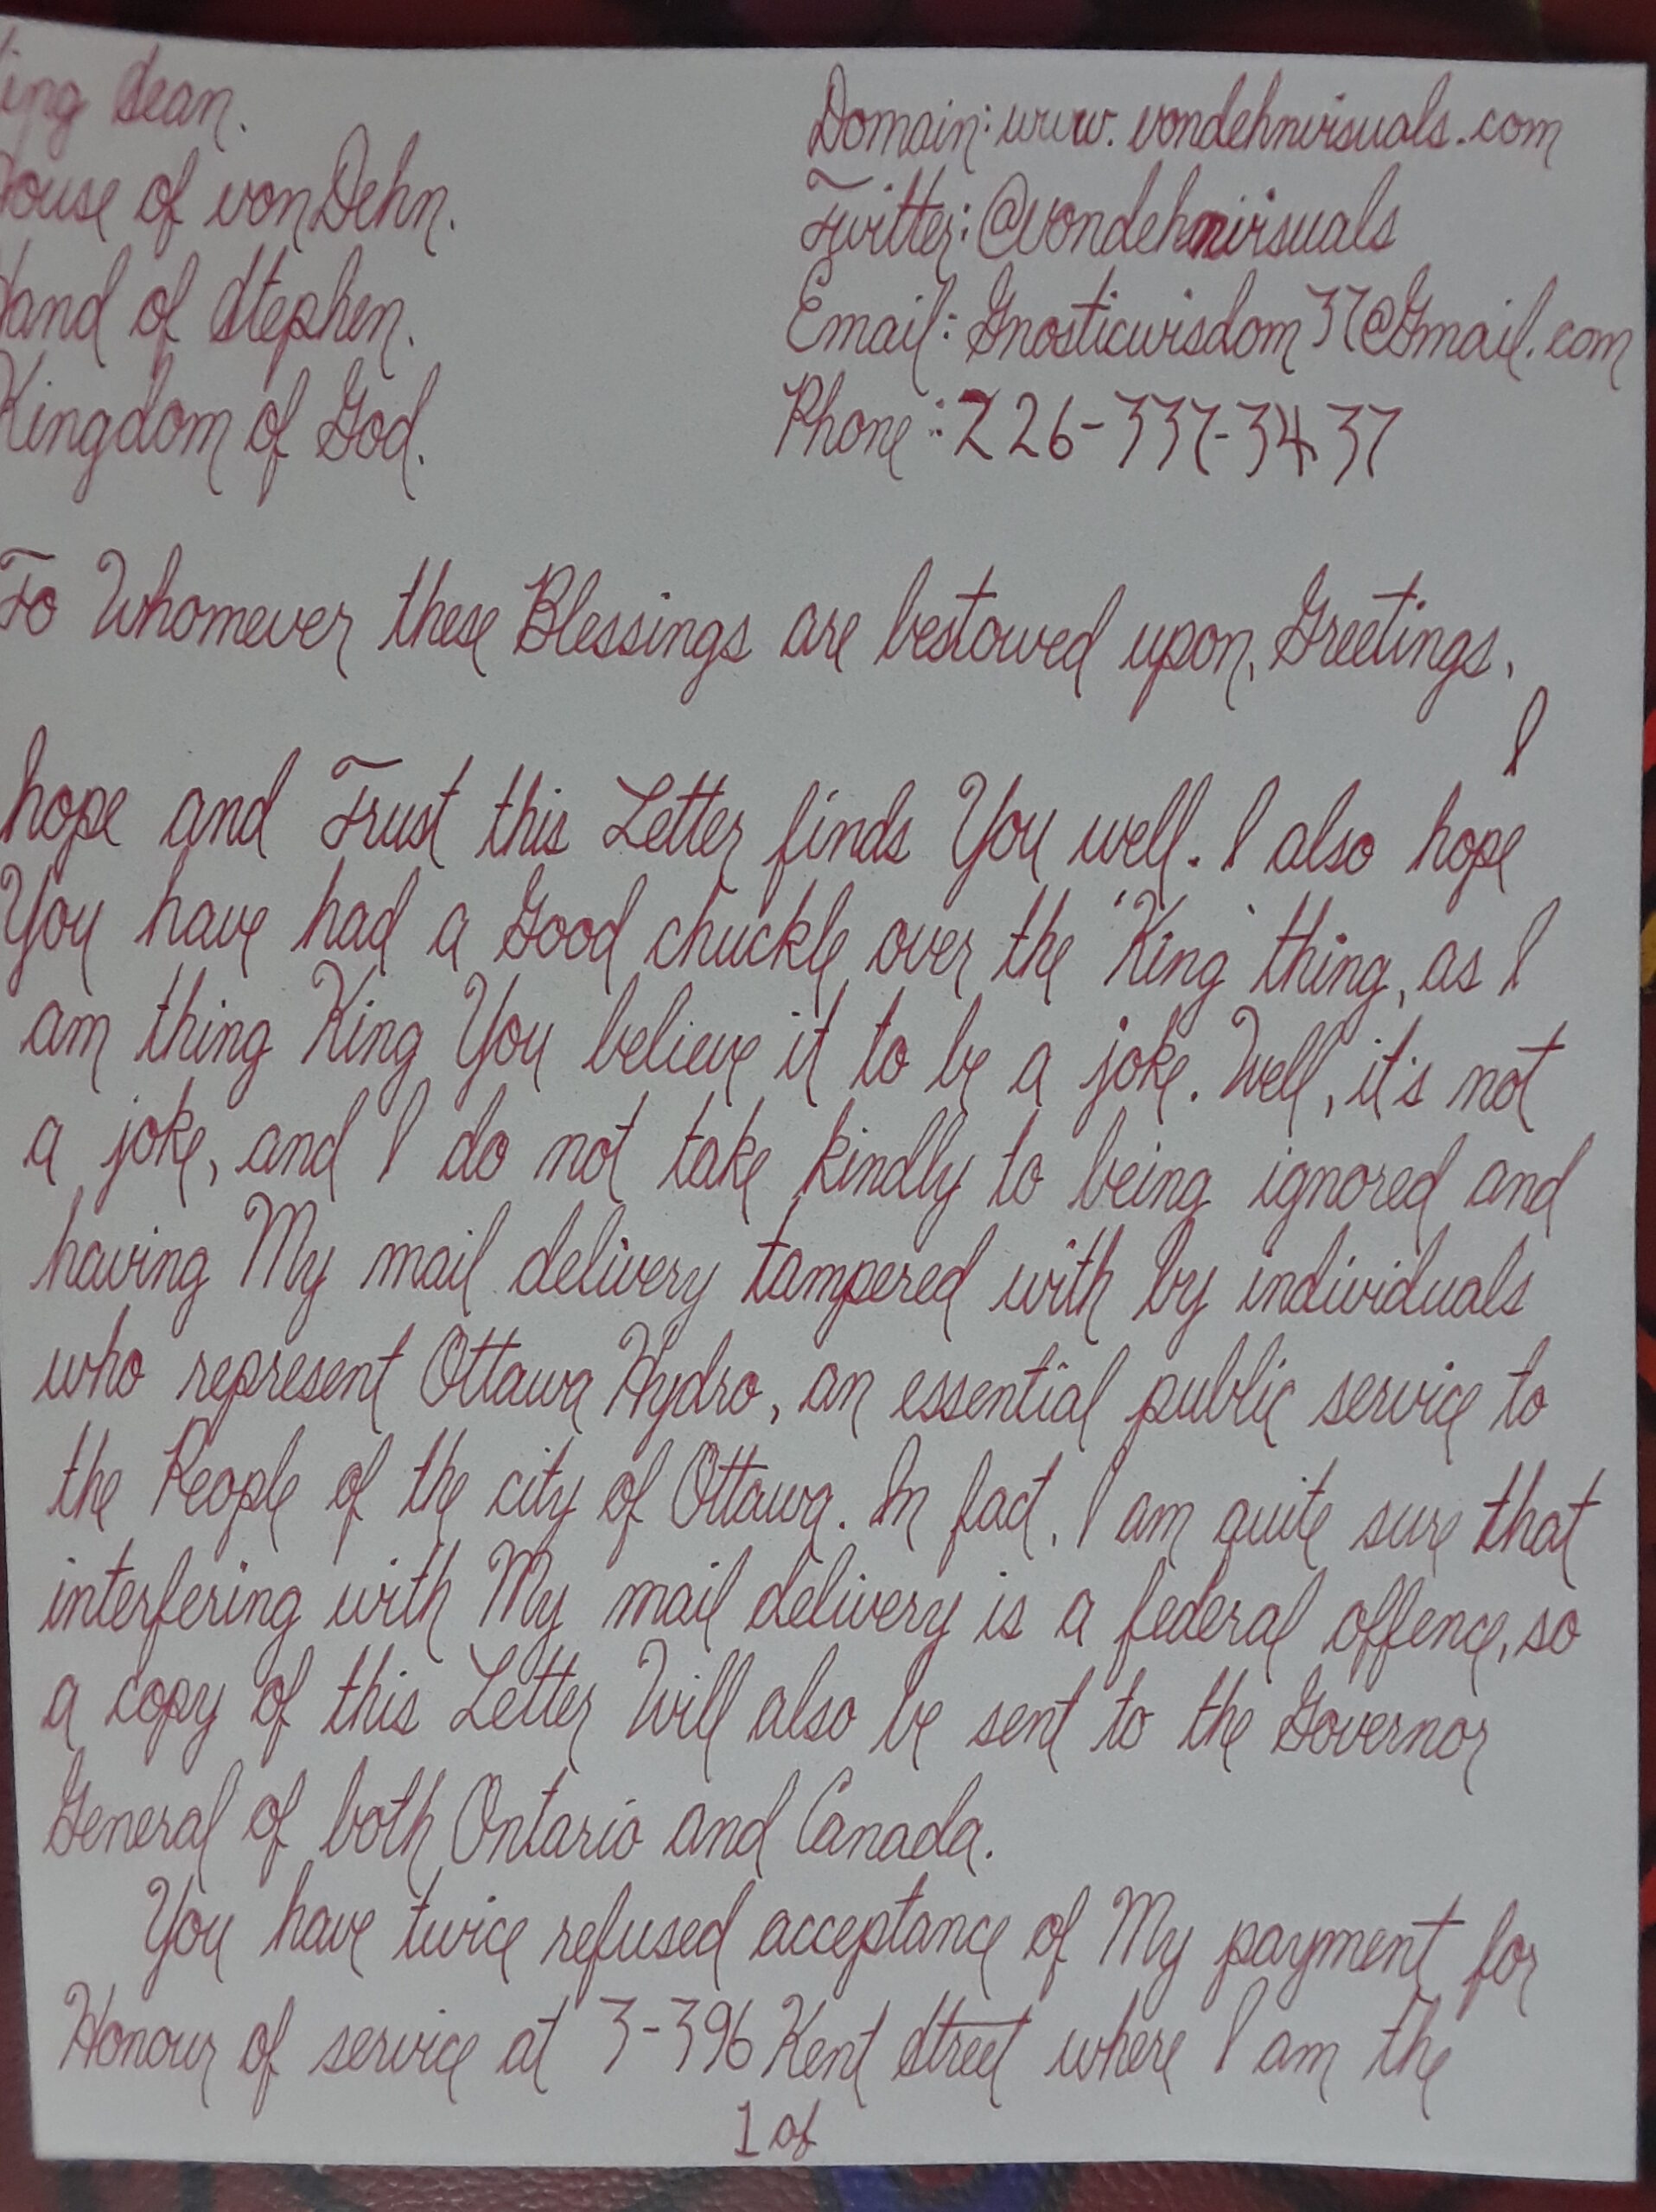 King Sean.
House of vonDehn.
Hand of Stephen.
Kingdom of God.
Domain: www.vondehnvisuals.com
Twitter: @vondehnvisuals
Email: Gnosticwisdom37@Gmail.com
Phone: 226-337-3437
To Whomever these Blessings are bestowed upon, Greetings,
I
hope and Trust this Letter finds You well. I also hope
You have had a Good chuckle over the 'King' thing, as I
am thing King You believe it to be a joke. Well, it's not
a joke, and I do not take kindly to being ignored and
having My mail delivery tampered with by individuals
who represent Ottawa Hydro, an essential public service to
the People of the city of Ottawa. In fact, I am quite sure that
interfering with My mail delivery is a federal offence, so
a copy of this Letter Will also be sent to the Governor
General of both Ontario and Canada.
You have twice refused acceptance of My payment for
Honour of service at 3-396 Kent Street where I am the
1 of